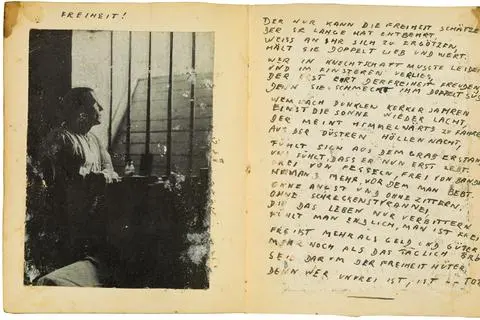 FREIHEIT!
DER NUR KANN DIE FREIHEIT SCHÄTZEN
DER SIE LANGE HAT ENTBEHRT,
WEISS AN IHR SICH ZU ERGÖTZEN,
HÄLT SIE DOPPELT LIEB UND WERT.
WER IN KNECHTSCHAFT MUSSTE LEIDEN
UND IM FINSTEREN VERLIES,
DER ERST EHRT DER FREIHEIT FREUDEN
DENN SIE SCHMECKT IHM DOPPELT SÜS
WEM NACH DUNKLEN KERKERJAHREN
EINST DIE SONNE WIEDER LACHT,
DER MEINT HIMMELWÄRTS ZU FAHREN
AUS DER DÜSTREN HÖLLENNACHT,
FÜHLT SICH AUS DEM GRAB
UND FÜHLT, DASS ER NUN ERST LEBT.
FREI VON FESSELN, FREI VON
NIEMAND MEHR, VOR DEM MAN BEBT.
OHNE ANGST UND OHNE ZITTERN,
OHNE SCHRECKENSTYRANNEI,
DIE DAS LEBEN NUR VERBITTERN
FÜHLT MAN ENDLICH, MAN IST FREI
FREIHEIT MEHR ALS GELD UND GÜTER
MEHR NOCH ALS DAS TÄGLICH BRO
SEID DARUM DER FREIHEIT HÜTER,
DENN WER UNFREI IST, IST -- TOT